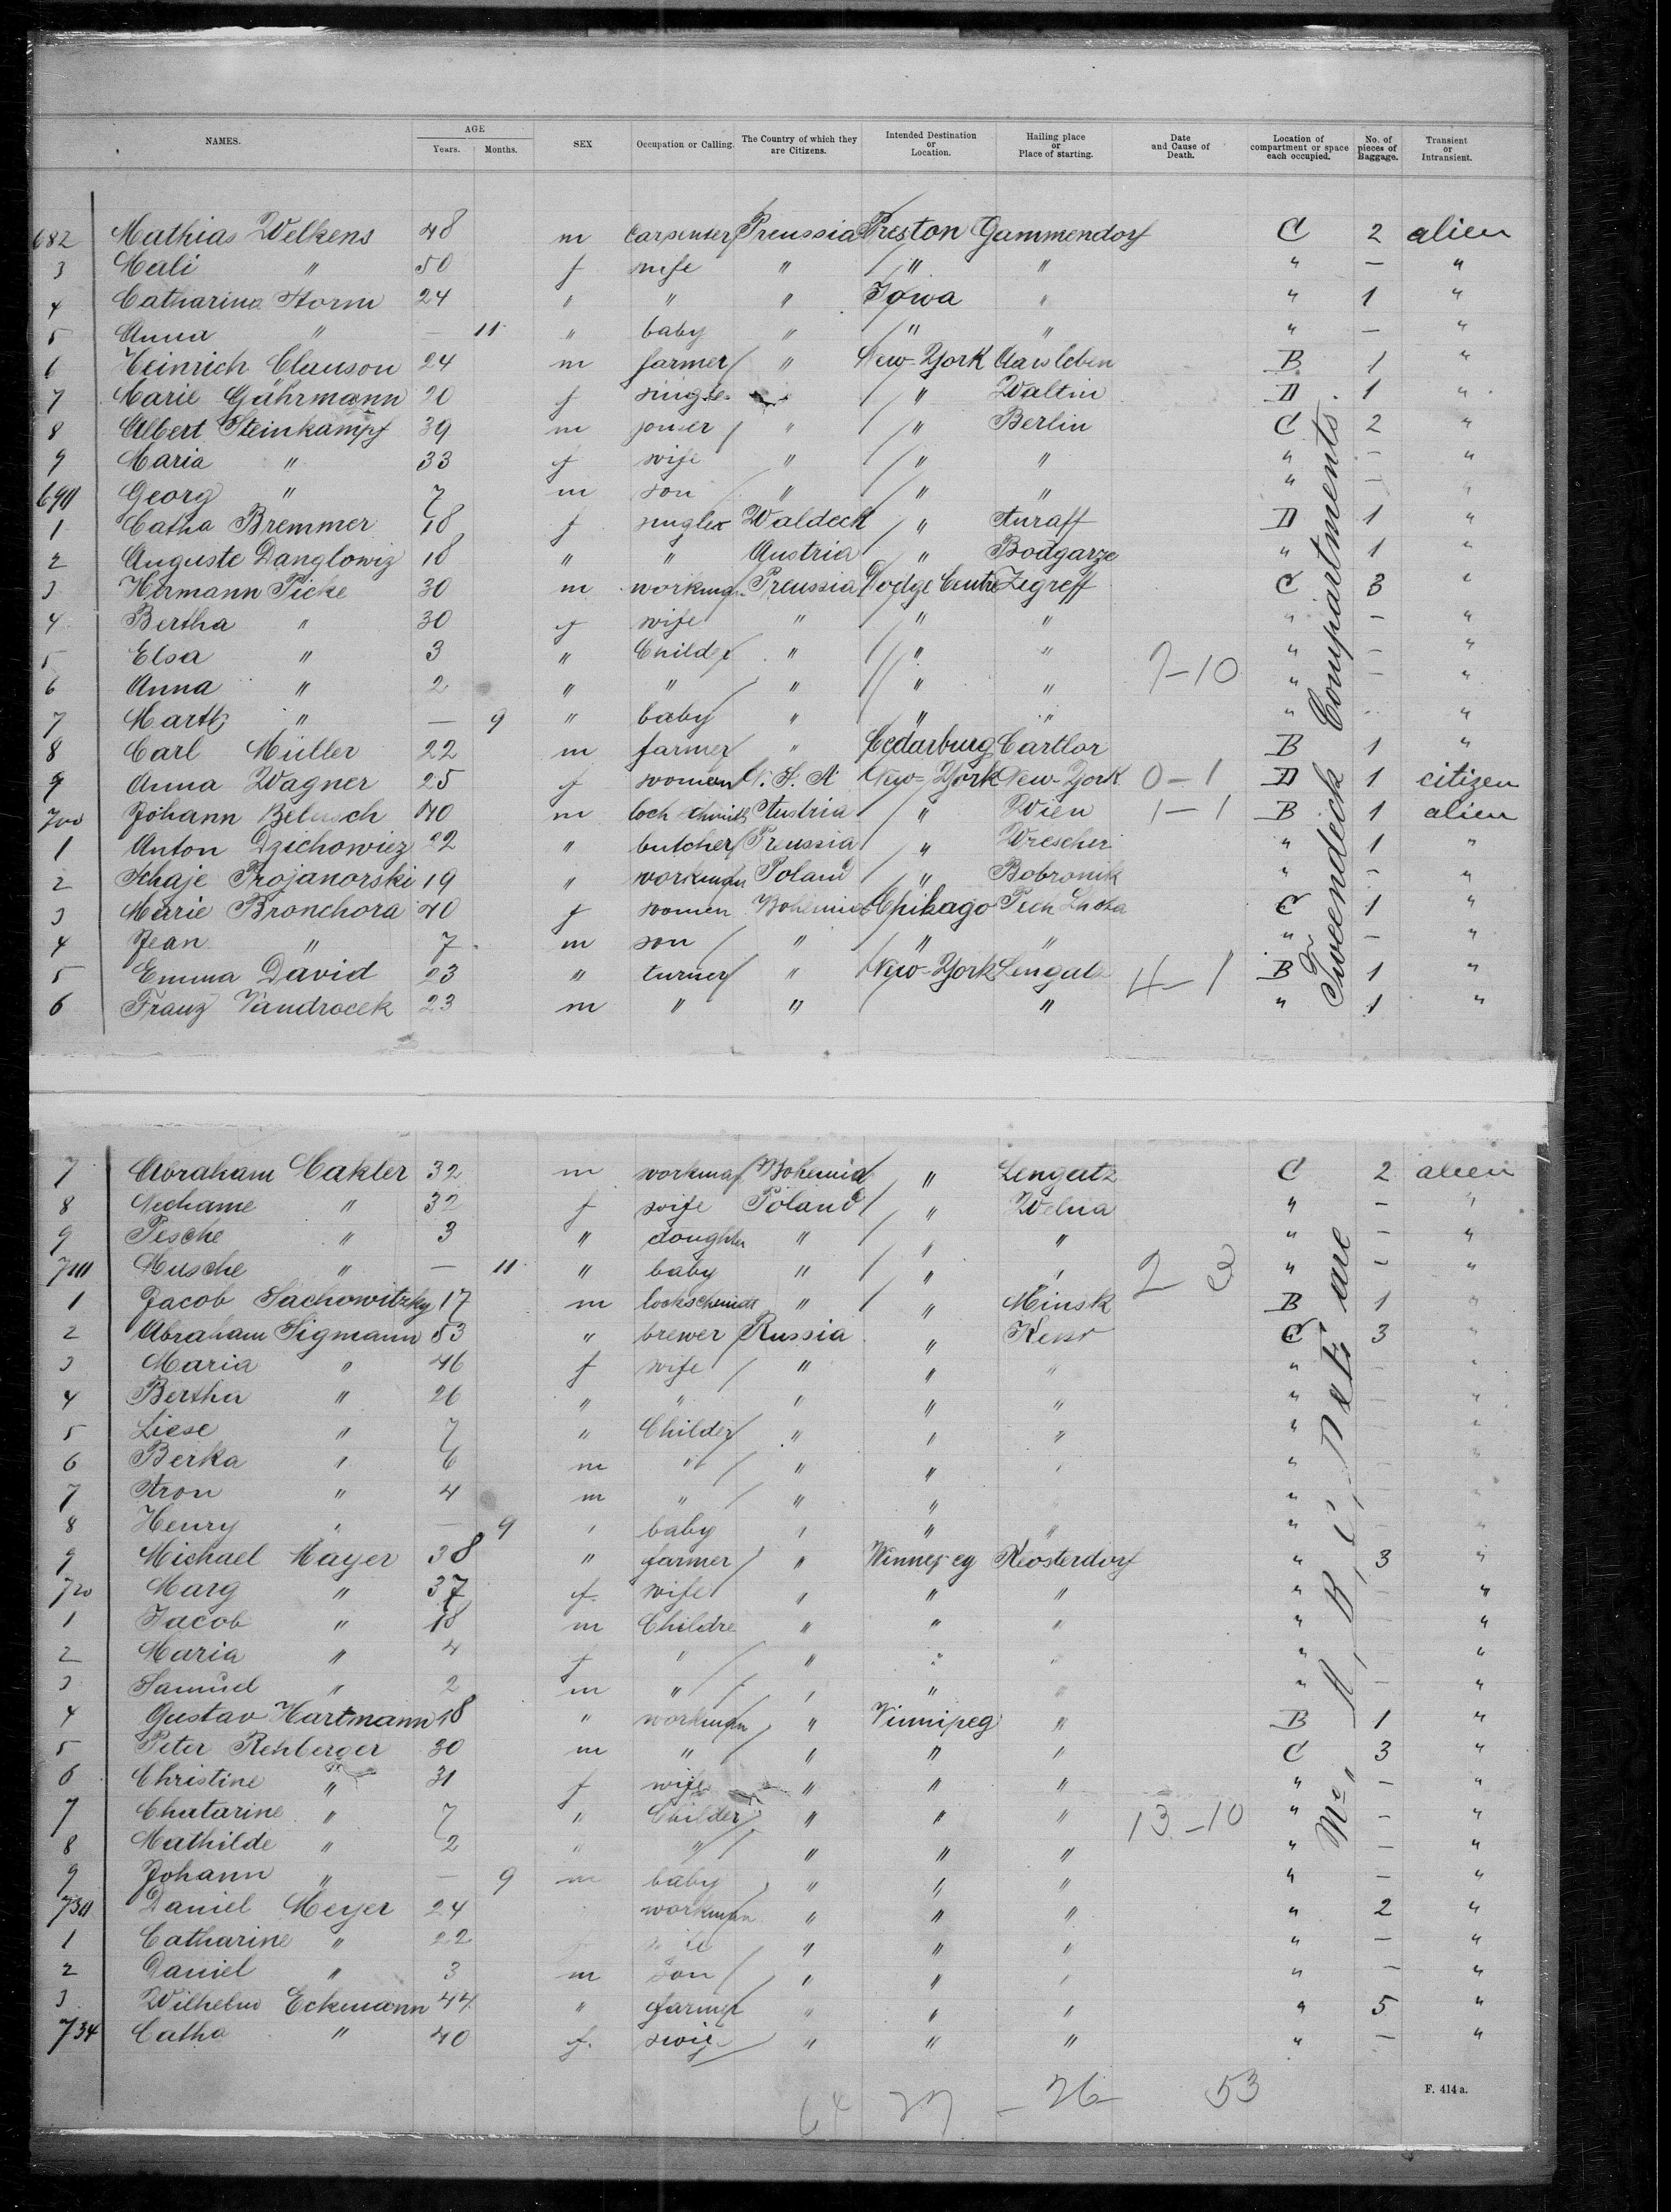 NAMES. AGE Years. Months. SEX Occupation or Calling. The Country of which they are Citizens. Intended Destination or Location. Hailing place or Place of starting. Date and Cause of Death. Location of compartment or space each occupied. No. of pieces of Baggage. Transient or Intransient.
682 Mathias Welkens 48 m carpenter Preussia Preston Gammendorf C 2 alien
3 Mali " 50 f wife " " " " — "
4 Catharina Storm 24 " " " Iowa " " 1 "
5 Anna " — 11 " baby " " " " — "
6 Heinrich Clauson 24 m farmer " New-York B 1 "
7 Marie Gährmann 20 f single " Waltin D 1 "
8 Albert Steinkampf 39 m joiner " " Berlin C 2 "
9 Maria " 33 f wife " " " " — "
690 Georg " 7 m son " " " " — "
1 Catha Bremmer 18 f single Waldeck " D 1 "
2 Auguste Danglowiz 18 " " Austria " Bodgarze " 1 "
3 Hermann Picke 30 m workman Preussia Dodge Centre Zegreff C 3 "
4 Bertha " 30 f wife " " " " — "
5 Elsa " 3 " Childer " " " " — "
6 Anna " 2 " " " " " 7-10 " — "
7 " — 9 " baby " " " " "
8 Carl Müller 22 m farmer " Cedarburg Cartlor B 1 "
9 Anna Wagner 25 f women U. S. A. New-York New-York 0-1 D 1 citizen
700 Johann 40 m Austria " Wien 1-1 B 1 alien
1 Anton Dzichowiez 22 " butcher Preussia " Wrescher " 1 "
2 Schaje Projanorski 19 " workman Poland " Bobronik " - "
3 Marie Bronchora 40 f women Bohemia Chikago C 1 "
4 Jean " 7 m son " " " " — "
5 Emma David 23 " turner " New-York Lengatz 4-1 B 1 "
6 Franz Vandrocek 23 m " " " " 1 "
7 Abraham Cakler 32 m workman Bohemia " Lengatz C 2 alien
8 Nechame " 32 f wife Poland " Welna " - "
9 Pesche " 3 " doughter " " " " - "
710 Musche " — 11 " baby " " " 2 3 " - "
1 Jacob Sachowitzky 17 m lockschmidt " " Minsk B 1 "
2 Abraham Sigmann 53 " brewer Russia " C 3 "
3 Maria " 46 f wife " " " " "
4 Bertha " 26 " " " " " " — "
5 Liese " 7 " Childer " " " " "
6 Berka " 6 m " " " " " "
7 Aron " 4 m " " " " " "
8 Henry " — 9 " baby " " " " "
9 Michael Mayer 38 " farmer " Winnepeg Klosterdorf " 3 "
720 Marg " 37 f wife " " " " — "
1 Jacob " 18 m Childre " " " " — "
2 Maria " 4 f " " " " " — "
3 Samuel " 2 m " " " " " — "
4 Gustav Hartmann 18 " workman " Vinnipeg " B 1 "
5 Peter Rehberger 30 m " " " " C 3 "
6 Christine " 31 f wife " " " " — "
7 Chatarine " 7 " Childer " " " 13-10 " — "
8 Mathilde " 2 " " " " " " — "
9 Johann " — 9 m baby " " " " — "
730 Daniel Meyer 24 workman " " " " 2 "
1 Catharine " 22 " " " " — "
2 Daniel " 3 m Son " " " " — "
3 Wilhelm Eckmann 44 " farmer " " " " 5 "
734 Catha " 40 f. wife " " " " — "
64 27 - 26 53
F. 414 a.
Tweendeck Compartments.
A, B, C, D